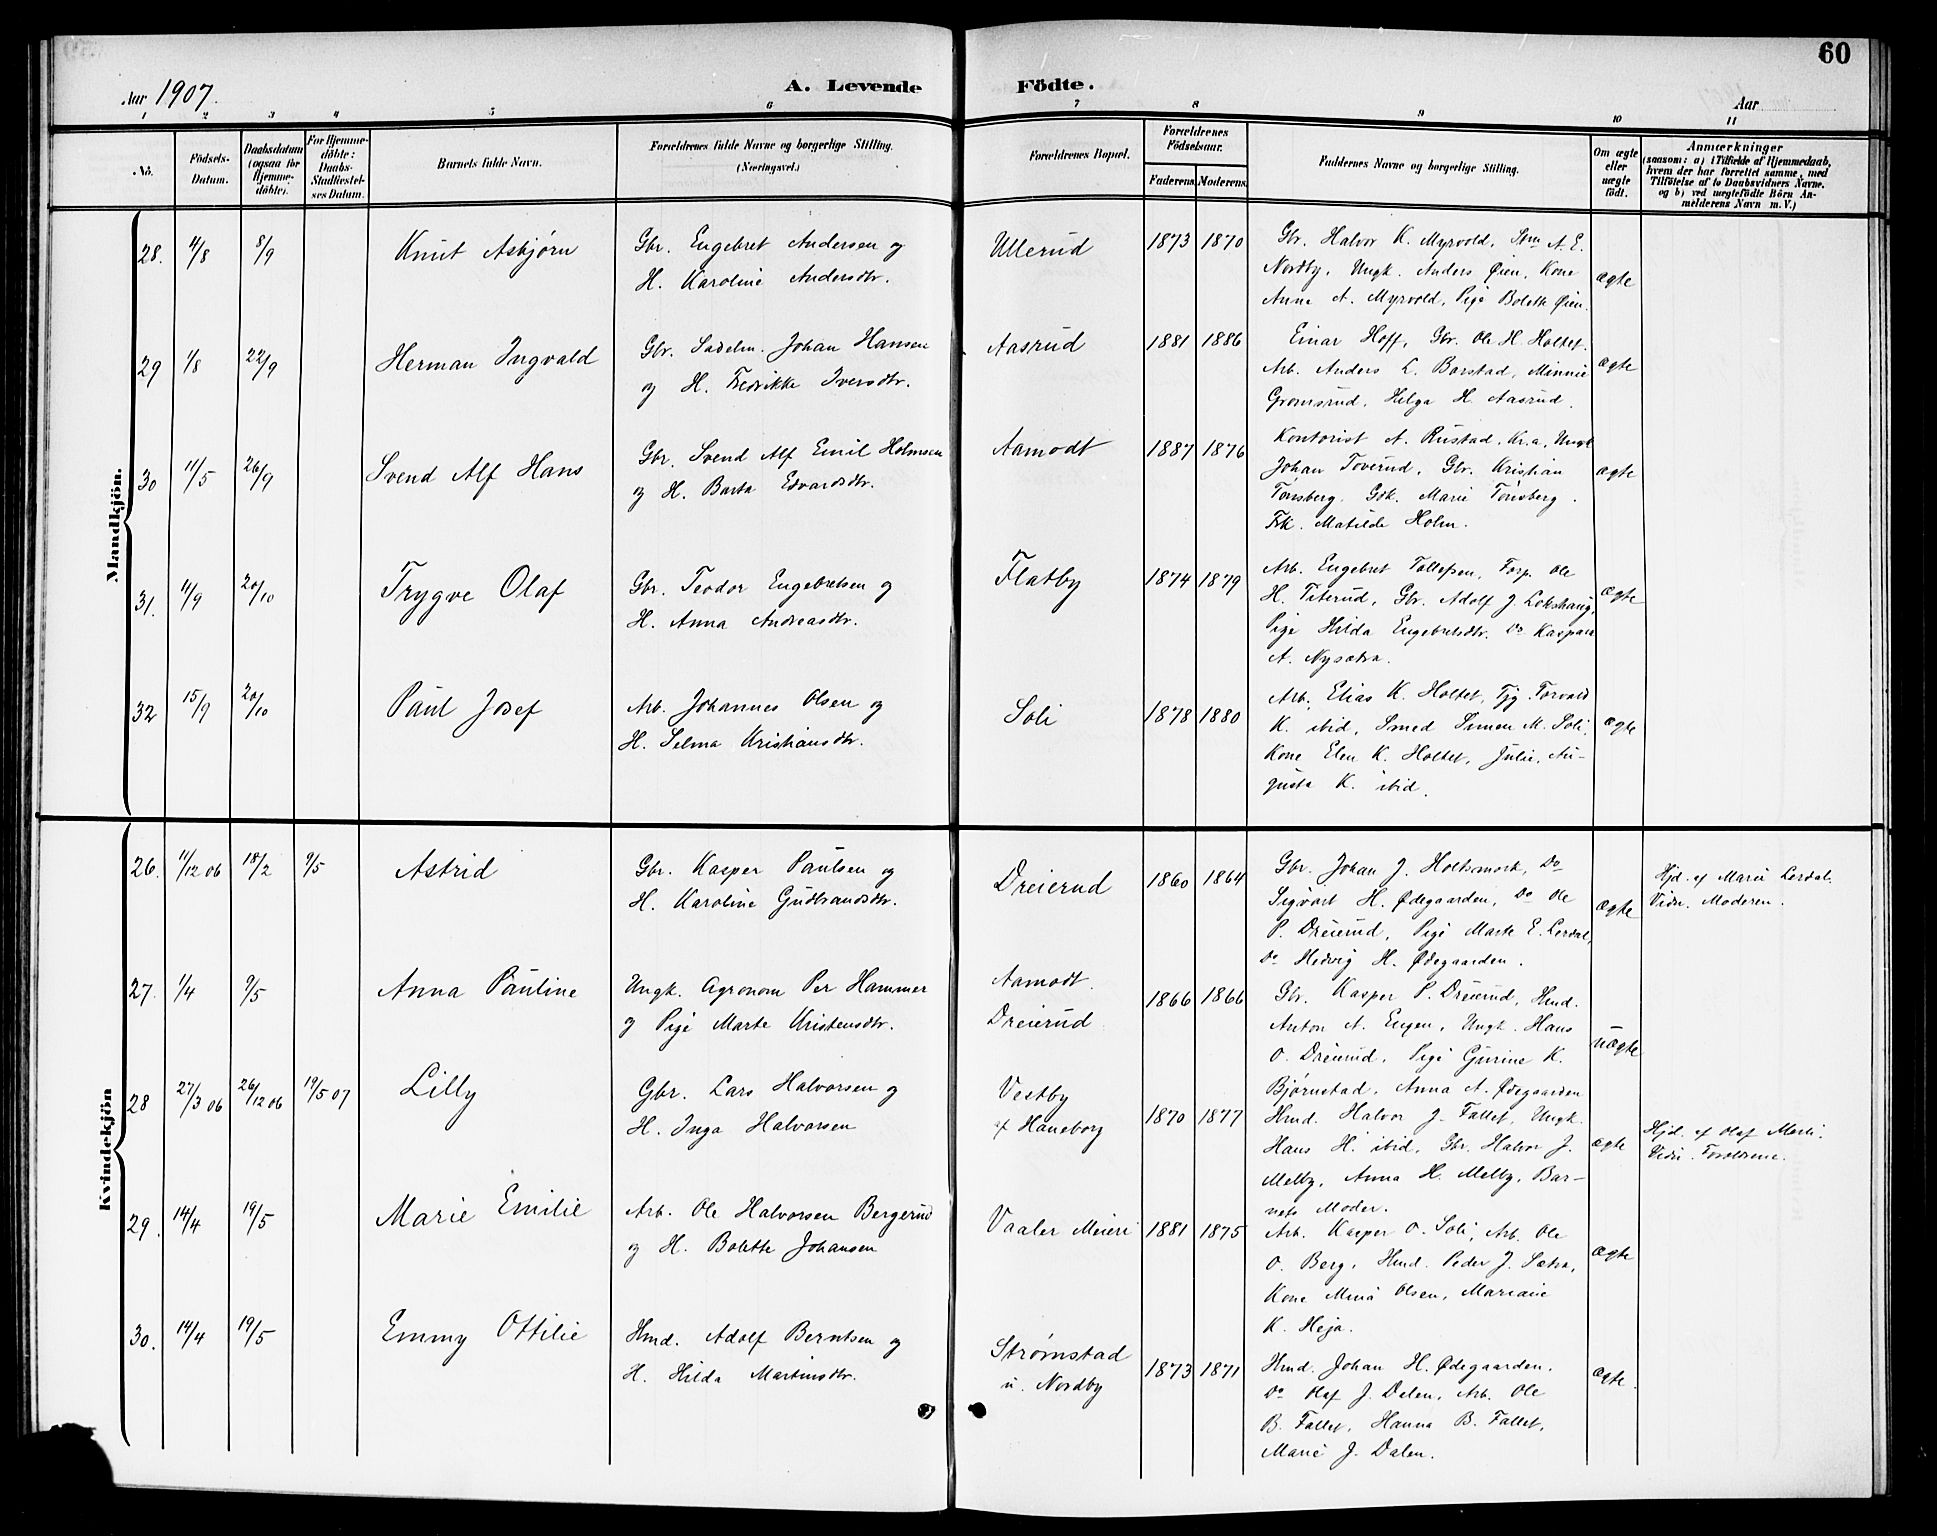 60
Aar 1907.
A. Levende Födte.
Aar
1 2 3 4 5 6 7 8 9 10 11
No.
Födsels-Datum.
Daabsdatum (ogsaa för Hjemme-döbte).
For Hjemme-döbte: Daabs-Stadfæstel-ses Datum.
Barnets fulde Navn.
Forældrenes fulde Navne og borgerlige Stilling. (Næringsvei.)
Forældrenes Bopæl.
Forældrenes Födselsaar.
Faderens. Moderens.
Faddernes Navne og borgerlige Stilling.
Om ægte eller uægte födt.
Anmærkninger
(saasom: a) i Tilfælde af Hjemmedaab,
hvem der har forrettet samme, med
Tilföielse af to Daabsvidners Navne,
og b) ved uægtefödte Börn An-
melderens Navn m. V.)
Mandkjön.
28. 11/8 8/9 Knut Asbjørn
Gbr. Engebret Andersen og
H. Karoline Andersdtr.
Ullerud 1873 1870
Gbr. Halvor K. Myrvold, Sm A. E.
Nordby, Ungk. Anders Øien, Kone
Anne A. Myrvold, Pige Bolette Øien.
ægte
29 1/8 22/9 Herman Ingvald
Gbr. Sadelm. Johan Hansen
og H. Fredrikke Iversdtr.
Aasrud 1881 1886
Einar Hoff, Gbr. Ole H. Holtet.
Arb. Anders L. Barstad, Minnie
Gromsrud, Helga H. Aasrud.
ægte
30 11/5 26/9 Svend Alf Hans
Gbr. Svend Alf Emil Holmsen
og H. Berta Edvardsdtr.
Aamodt 1887 1876
Kontorist A. Rustad, Kr.a, Ungk
Johan Toverud, Gbr. Kristian
Tønsberg. Gbk. Marie Tønsberg.
Frk. Matilde Holm.
ægte
31. 11/9 20/10 Trygve Olaf
Gbr. Teodor Engebretsen og
H. Anna Andreasdtr.
Flatby 1874 1879
Arb. Engebret Tollefsen, Forp. Ole
H. Titerud, Gbr. Adolf J. Lokshaug,
Pige Hilda Engebretsdtr. Do Kaspara
A. Nysætra.
ægte
32 15/9 20/10 Paul Josef
Arb. Johannes Olsen og
H. Selma Kristiansdtr.
Soli 1878 1880
Arb. Elias K. Holtet, Tjg. Torvald
K. ibid, Smed Simen M. Soli,
Kone Elen K. Holtet, Julie, Au-
gusta K. ibid.
ægte
Kvindekjön
26. 11/12 06 18/2 9/5 Astrid
Gbr. Kasper Paulsen og
H. Karoline Gudbrandsdtr.
Dreierud 1860 1864
Gbr. Johan J. Holtsmark, Do
Sigvart H. Ødegaarden, Do Ole
P. Dreierud, Pige Marte E. Lerdal,
Do Hedvig H. Ødegaarden.
ægte
Hjd. af Marie Lerdal.
Vidn. Moderen.
27. 1/4 9/5 Anna Pauline
Ungk. Agronom Per Hammer
og Pige Marte Kristensdtr.
Aamodt.
Dreierud 1866 1866
Gbr. Kasper P. Dreierud, Hmd.
Anton A. Engen, Ungk. Hans
O. Dreierud, Pige Gurine K.
Bjørnstad, Anna A. Ødegaarden
uægte
28 27/3 06 26/12 06 19/5 07 Lilly
Gbr. Lars Halvorsen og
H. Inga Halvorsen
Vestby
af Haneborg 1870 1877
Hmd. Halvor J. Fallet, Ungk.
Hans H. ibid, Gbr. Halvor J.
Melby, Anna H. Melby, Bar-
nets Moder.
ægte
Hjd. af Olaf Mörli.
Vidn. Forældrene.
29. 14/4 19/5 Marie Emilie
Arb. Ole Halvorsen Bergerud
og H. Bolette Johansen
Vaaler Meieri 1881 1875
Arb. Kasper O. Soli, Arb. Ole
O. Berg, Hmd. Peder J. Sætra,
Kone Mina Olsen, Mariane
K. Heja.
ægte
30. 14/4 19/5 Emmy Ottilie
Hmd. Adolf Berntsen og
H. Hilda Martinsdtr.
Strømstad
u. Nordby 1873 1871
Hmd. Johan H. Ødegaarden.
Do Olaf J. Dalen, Arb. Ole
B. Fallet, Hanna B. Fallet,
Marie J. Dalen.
ægte.